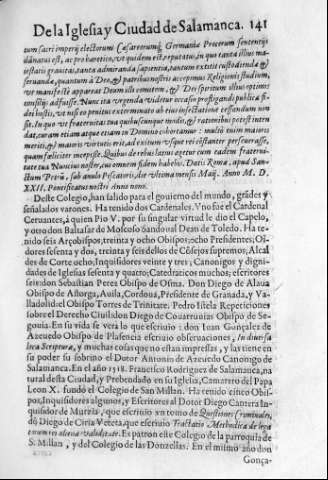 De la Iglesia y Ciudad de Salamanca. 141
tum sacri imperij electorum Cæsareorumq́ Germaniæ Procerum sententijs
dãnatus est, ac pro hæretico, vt quidem est, reputatur, in quo tanta illius ma-
iestatis grauitas, tanta admiranda sapientia, tantum extitit custodiendæ
seruandæ, quantum à Deo, & patribus nostris accepimus Religionis studium,
ve manifestè appareat Deum illi comitem, & Dei spiritum illius optimos
consilijs adfuisse. Nunc ita vrgenda videtur occasio profligandi publica fi
dei hostis, vt
se. In quo vt fraternitas tua quibuscunque modis, & rationibus potest inten
dat, curam etiam atque etiam in Domino cohortamur:
meriti, & maioris virtutis erit, ad exitum vsque rei constanter perseuerasse,
quam fœliciter incepisse. Quibus de rebus latius aget cum eadem fraterni-
tate tua Nuncius noster, cui omnem fidem habebis. Datis Romæ, apud San-
ctum Petrũ, sub anulo Pescatoris, die vltima mensis Maij. Anno M. D.
XXII. Pontificatus nostri Anno nono.
Deste Colegio, han salido para el gouierno del mundo, grãdes y
señalados varones. Ha tenido dos Cardenales. Vno fue el Cardenal
Ceruantes, à quien Pio V. por su singular virtud le dio el Capelo,
y otro don Baltasar de Moscoso Sandoual Dean de Toledo. Ha te-
nido seis Arçobispos; treinta y ocho Obispos; ocho Presidentes; Oi-
dores sesenta y dos, treinta y seis dellos de Cõsejos supremos; Alcal
des de Corte ocho; Inquisidores veinte y tres; Canonigos y digni-
dades de Iglesias sesenta y quatro; Catedraticos muchos; escritores
seis: don Sebastian Perez Obispo de Osma. Don Diego de Alaua
Obispo de Astorga, Auila, Cordoua, Presidente de Granada, y Va-
lladolid: el Obispo Torres de Trinitate. Pedro Istela Reperticiones
sobre el Derecho Ciuil: don Diego de Couarruuias Obispo de Se-
gouia. En su vida se verà lo que escriuio: don Iuan Gonçalez de
Azeuedo Obispo de Plasencia escriuio obseruaciones, In diuersa
loca Scripturæ, y muchas cosas que no estan impressas, y las tiene en
su poder su sobrino el Dotor Antonio de Azeuedo Canonigo de
Salamanca. En el año 1518. Francisco Rodriguez de Salamanca, na
tural desta Ciudad, y Prebendado en su Iglesia, Camarero del Papa
Leon X. fundò el Colegio de San Millan. Ha tenido cinco Obis-
pos, Inquisidores algunos, y Escritores al Dotor Diego Cantera In-
quisidor de Murzia, que escriuio vn tomo de Questiones Criminales,
dõ Diego de Ciria Veteta, que escriuio Tractatio Methodica de lega
torum

S. Millan, y del Colegio de las Donzellas. En el mismo año don
Gonça-